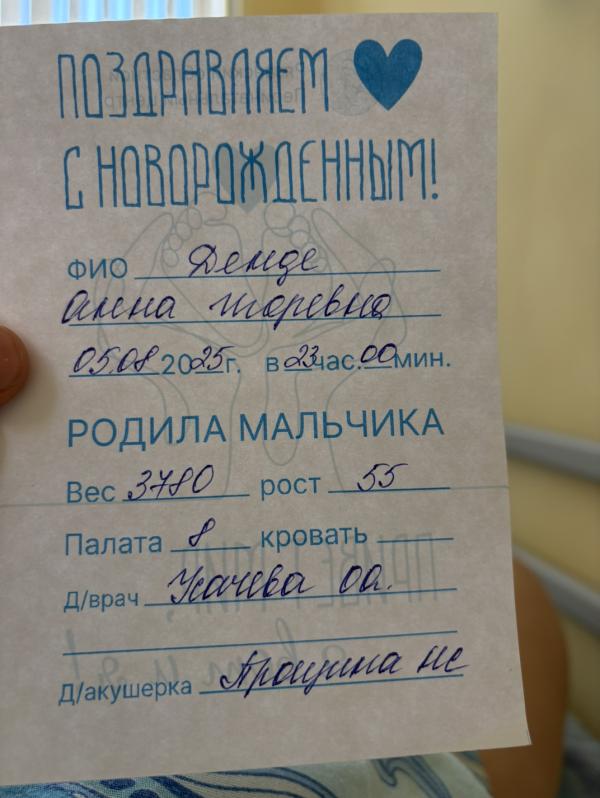 ПОЗДРАВЛЯЕМ
С НОВОРОЖДЕННЫМ!
ФИО Демде
Анна Игоревна
05.08 2025г. в 23час.00мин.
РОДИЛА МАЛЬЧИКА
Вес 3780 рост 55
Палата 8 кровать
Д/врач Усачева оа.
Д/акушерка Прощина нс